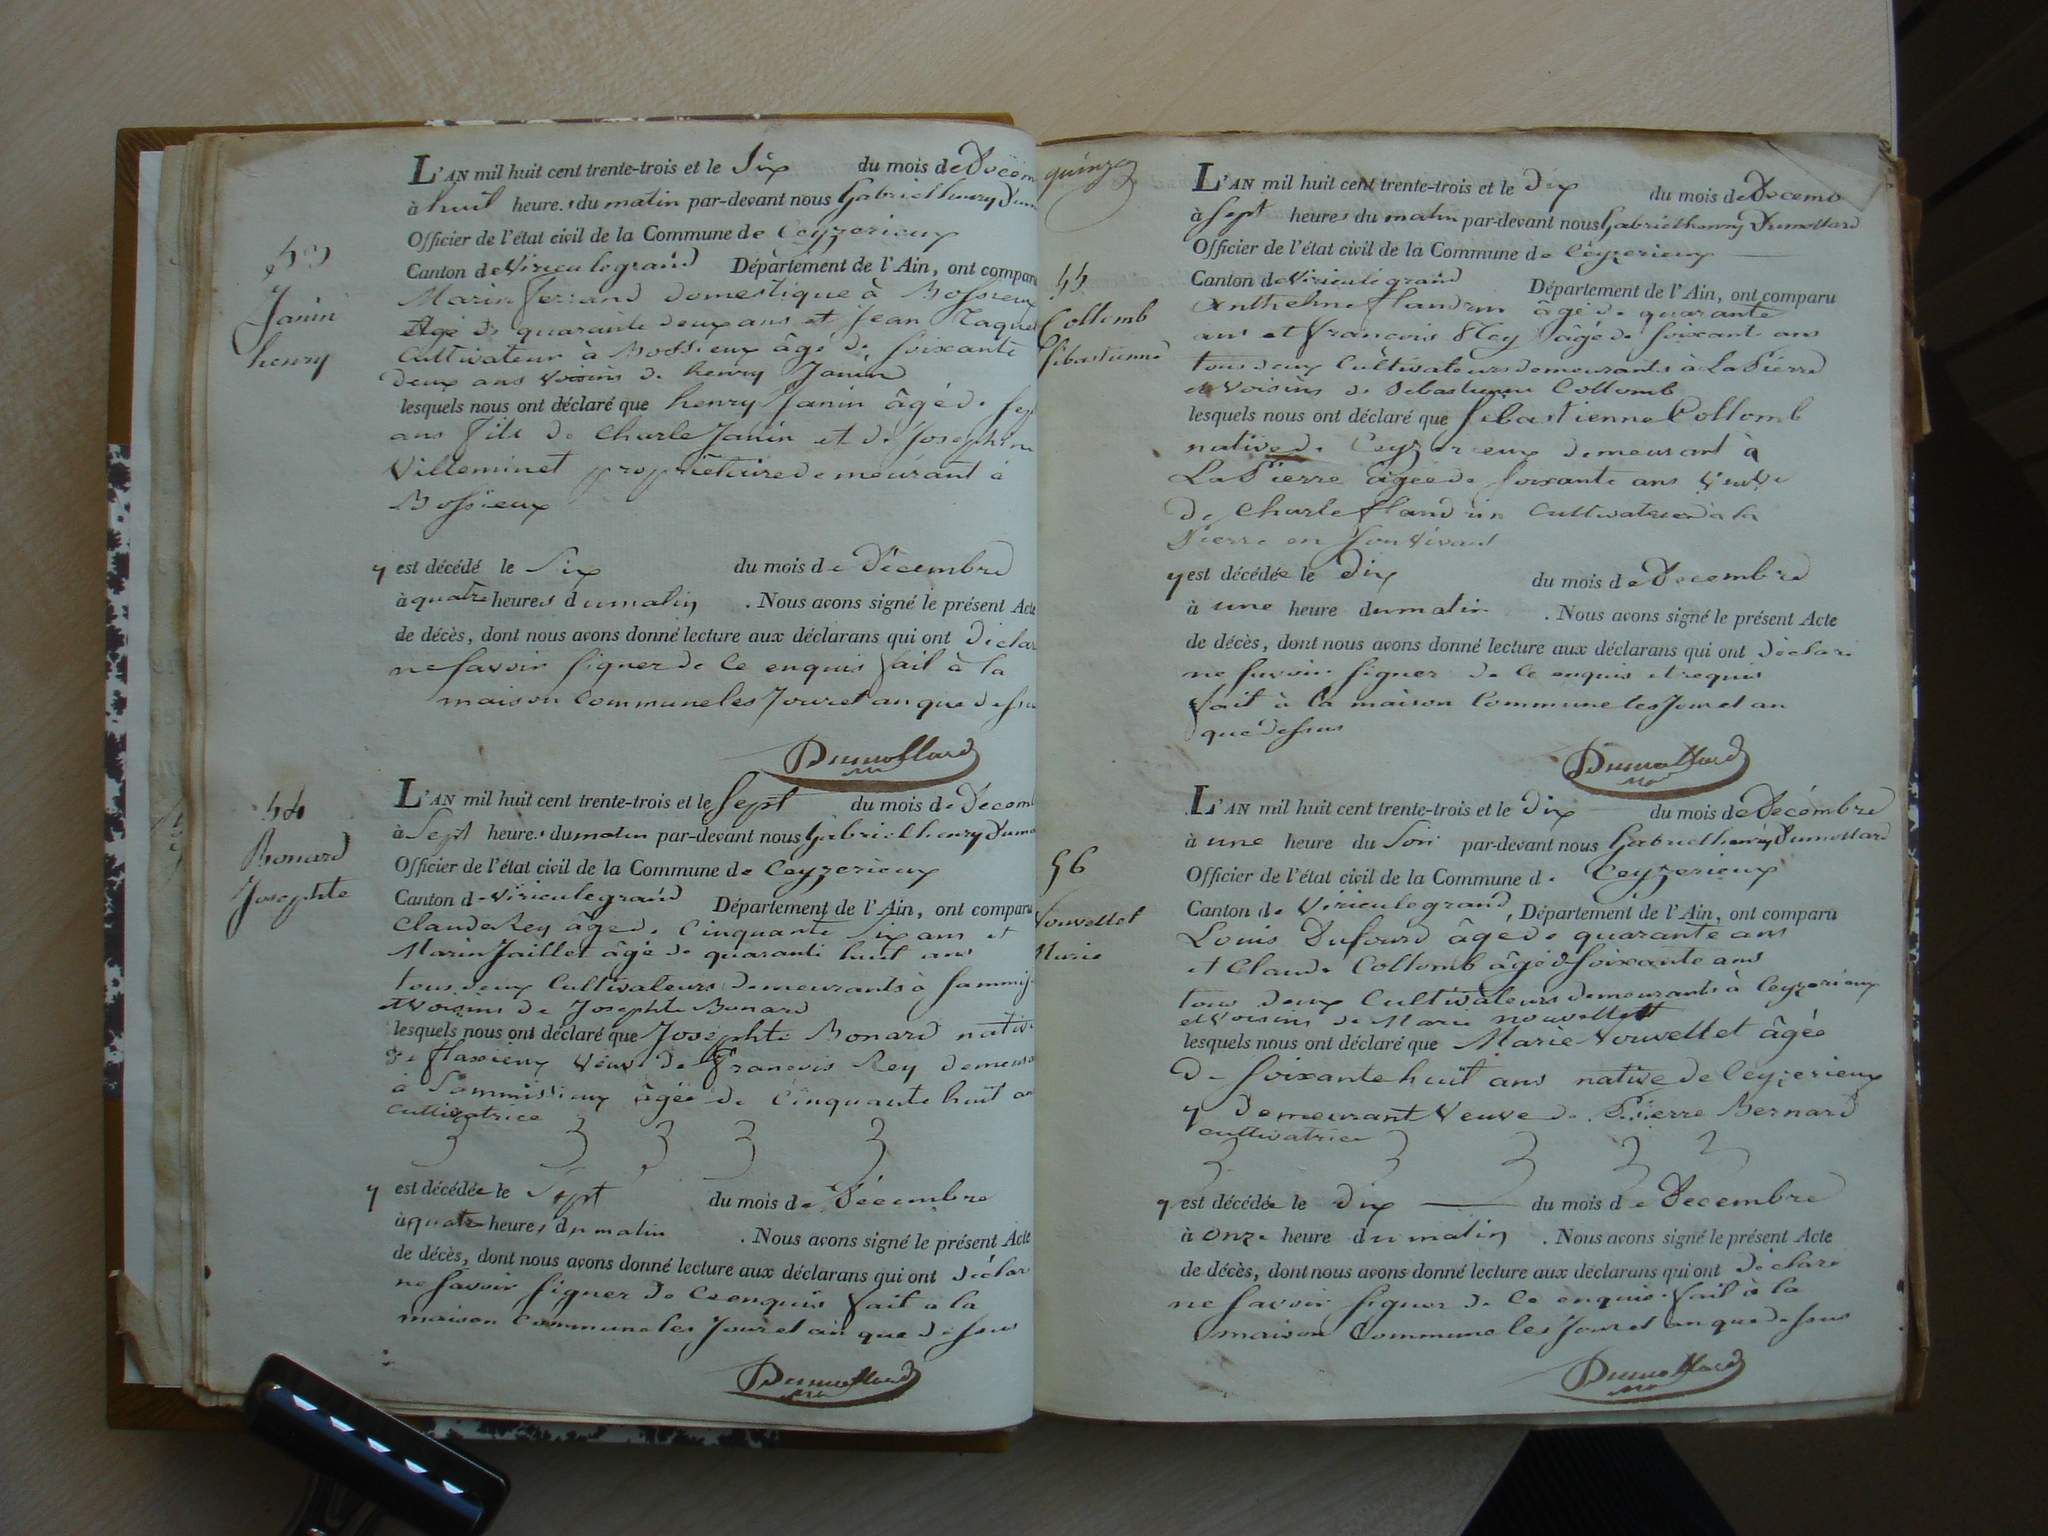 53
Janin
henry
L'AN mil huit cent trente-trois et le Six du mois de Décem
à huit heures du matin par-devant nous Gabriel henry Dum
Officier de l'état civil de la Commune de Ceyzerieux
Canton de Virieu le grand Département de l'Ain, ont comparu
Marin ferrand domestique à Bossieux
Agé de quarante deux ans et Jean
Cultivateur à Bossieux âgé de soixante
deux ans voisins de henry Janin
lesquels nous ont déclaré que henry Janin âgé de sept
ans fils de Charle Janin et de Josephine
Villeminet propriétaire demeurant à
Bossieux
y est décédé le Six du mois de Décembre
à quatre heures du matin . Nous avons signé le présent Acte
de décès, dont nous avons donné lecture aux déclarans qui ont déclar
ne savoir signer de ce enquis fait à la
maison Commune les Jour et an que dessu
Dumollard
54
Bonard
Josephte
L'AN mil huit cent trente-trois et le Sept du mois de Décem
à Sept heures du matin par-devant nous Gabriel henry Dumo
Officier de l'état civil de la Commune de Ceyzerieux
Canton de Virieu le grand Département de l'Ain, ont comparu
Claude Rey âgé de Cinquante Six ans et
Marin Jaillet âgé de quarante huit ans
tous deux Cultivateurs demeurants à
et voisins de Josephte Bonard
lesquels nous ont déclaré que Josephte Bonard native
de flaxieux veuve de François Rey demeura
à Sammissieux âgée de Cinquante huit an
Cultivatrice
y est décédée le Sept du mois de Décembre
à quatre heures du matin . Nous avons signé le présent Acte
de décès, dont nous avons donné lecture aux déclarans qui ont déclar
ne savoir signer de ce enquis fait à la
maison commune les Jour et an que dessus
Dumollard
quinze
55
Collomb
Sébastienne
L'AN mil huit cent trente-trois et le Dix du mois de Décemb
à Sept heures du matin par-devant nous Gabriel henry Dumollard
Officier de l'état civil de la Commune de Ceyzerieux
Canton de Virieu le grand Département de l'Ain, ont comparu
Anthelme flandrin âgé de quarante
ans et françois Rey âgé de soixante ans
tous deux Cultivateurs demeurants à La Pierre
et voisins de Sebastienne Collomb
lesquels nous ont déclaré que Sébastienne Collomb
native de Ceyzerieux demeurant à
La Pierre âgée de soixante ans veuve
de Charle flandrin Cultivatrice à la
Pierre en son vivant
y est décédée le Dix du mois de Décembre
à une heure du matin . Nous avons signé le présent Acte
de décès, dont nous avons donné lecture aux déclarans qui ont déclaré
ne savoir signer de ce enquis et requis
fait à la maison Commune les Jour et an
que dessus
Dumollard
56
Nouvellet
Marie
L'AN mil huit cent trente-trois et le Dix du mois de Décembre
à une heure du Soir par-devant nous Gabriel henry Dumollard
Officier de l'état civil de la Commune de Ceyzerieux
Canton de Virieu le grand, Département de l'Ain, ont comparu
Louis Dufourd âgé de quarante ans
et Claude Collomb âgé de soixante ans
tous deux Cultivateurs demeurants à Ceyzerieux
et voisins de Marie nouvellet
lesquels nous ont déclaré que Marie Nouvellet âgée
de soixante huit ans native de Ceyzerieux
y demeurant Veuve de Pierre Bernard
cultivatrice
y est décédée le Dix du mois de Décembre
à Onze heure du matin . Nous avons signé le présent Acte
de décès, dont nous avons donné lecture aux déclarans qui ont déclaré
ne savoir signer de ce enquis fait à la
maison Commune les Jour et an que dessus
Dumollard